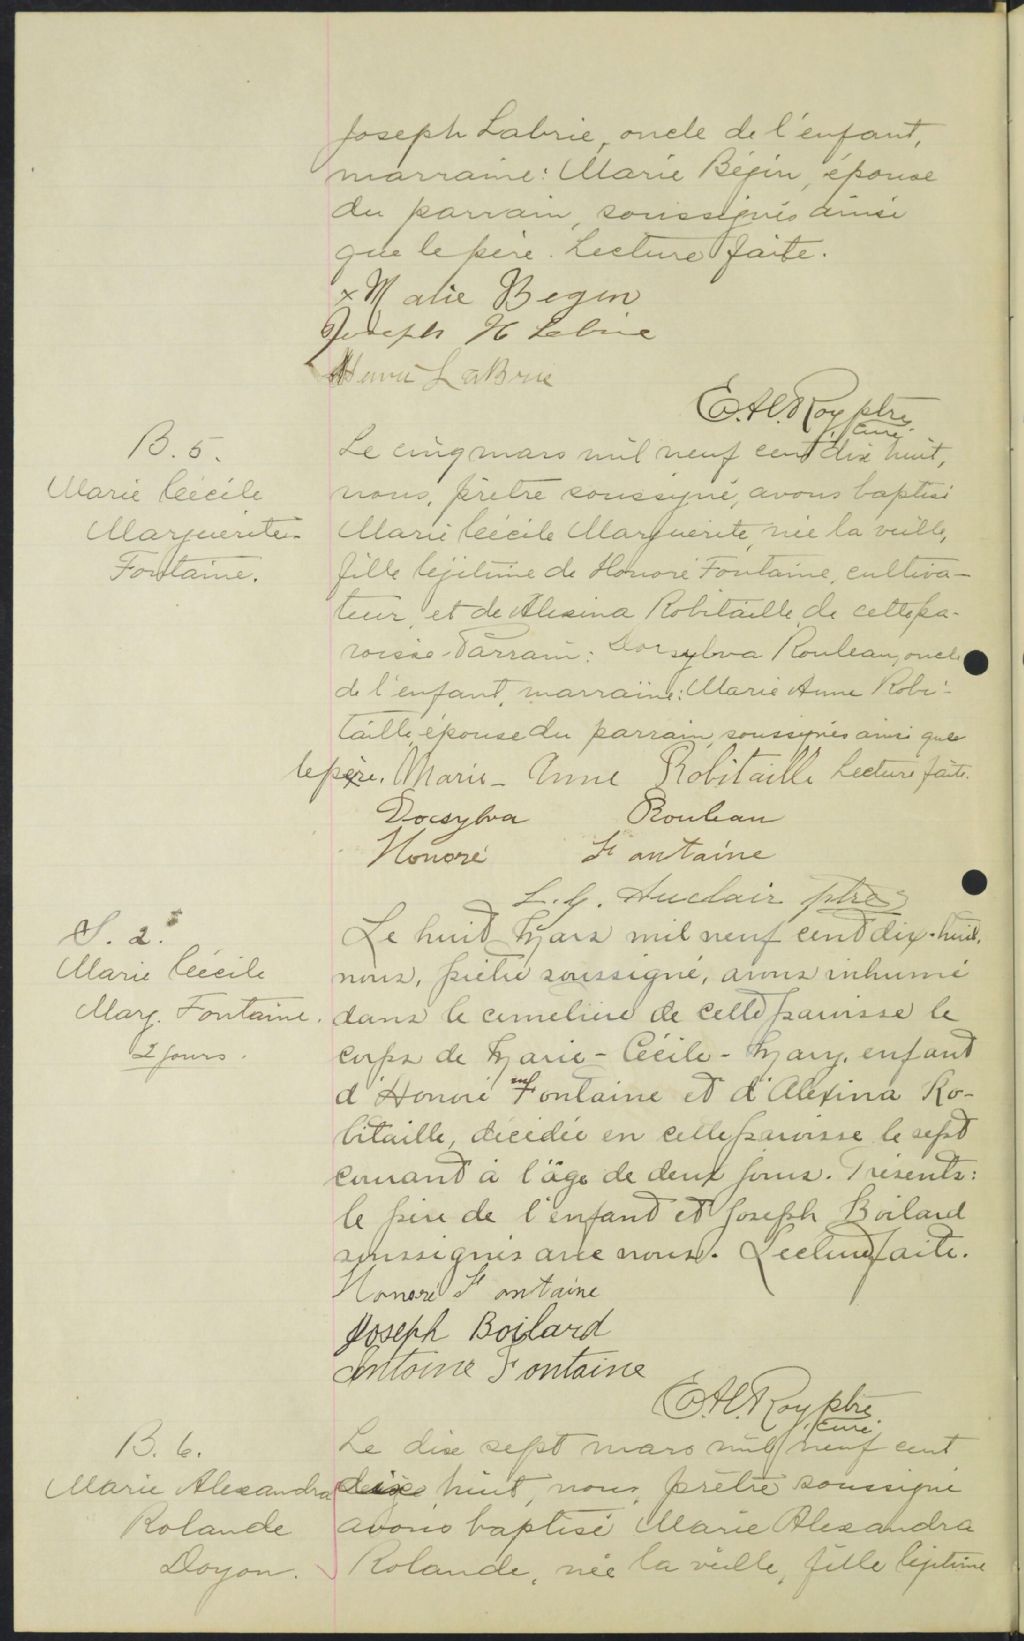 Joseph Labrie, oncle de l'enfant,
marraine: Marie Bégin, épouse
du parrain, soussignés ainsi
que le père. Lecture faite.
x Marie Begin
Joseph H Labrie
Henri LaBrie
E.A.Roy ptre
curé.
B. 5.
Marie Cécile
Marguerite
Fontaine.
Le cinq mars mil neuf cent dix huit,
nous, prêtre soussigné, avons baptisé
Marie Cécile Marguerite, née la veille,
fille légitime de Honoré Fontaine, cultiva-
teur, et de Alexina Robitaille, de cette pa-
roisse. Parrain: Dorsylva Rouleau, oncle
de l'enfant, marraine: Marie Anne Robi-
taille, épouse du parrain, soussignés ainsi que
le père. Marie-Anne Robitaille Lecture faite.
Docsylva Rouleau
Honoré Fontaine
L. G. Auclair ptre
S. 2.
Marie Cécile
Marg. Fontaine.
2 jours.
Le huit Mars mil neuf cent dix-huit,
nous, prêtre soussigné, avons inhumé
dans le cimetière de cette paroisse le
corps de Marie-Cécile-Marg. enfant
d'Honoré Fontaine et d'Alexina Ro-
bitaille, décédée en cette paroisse le sept
courant à l'âge de deux jours. Présents:
le père de l'enfant et Joseph Boilard
soussignés avec nous. Lecture faite.
Honoré Fontaine
Joseph Boilard
Antoine Fontaine
E.A.Roy ptre
curé.
B. 6.
Marie Alexandra
Rolande
Doyon.
Le dix sept mars mil neuf cent
dix huit, nous, prêtre soussigné
avons baptisé Marie Alexandra
Rolande, née la veille, fille légitime